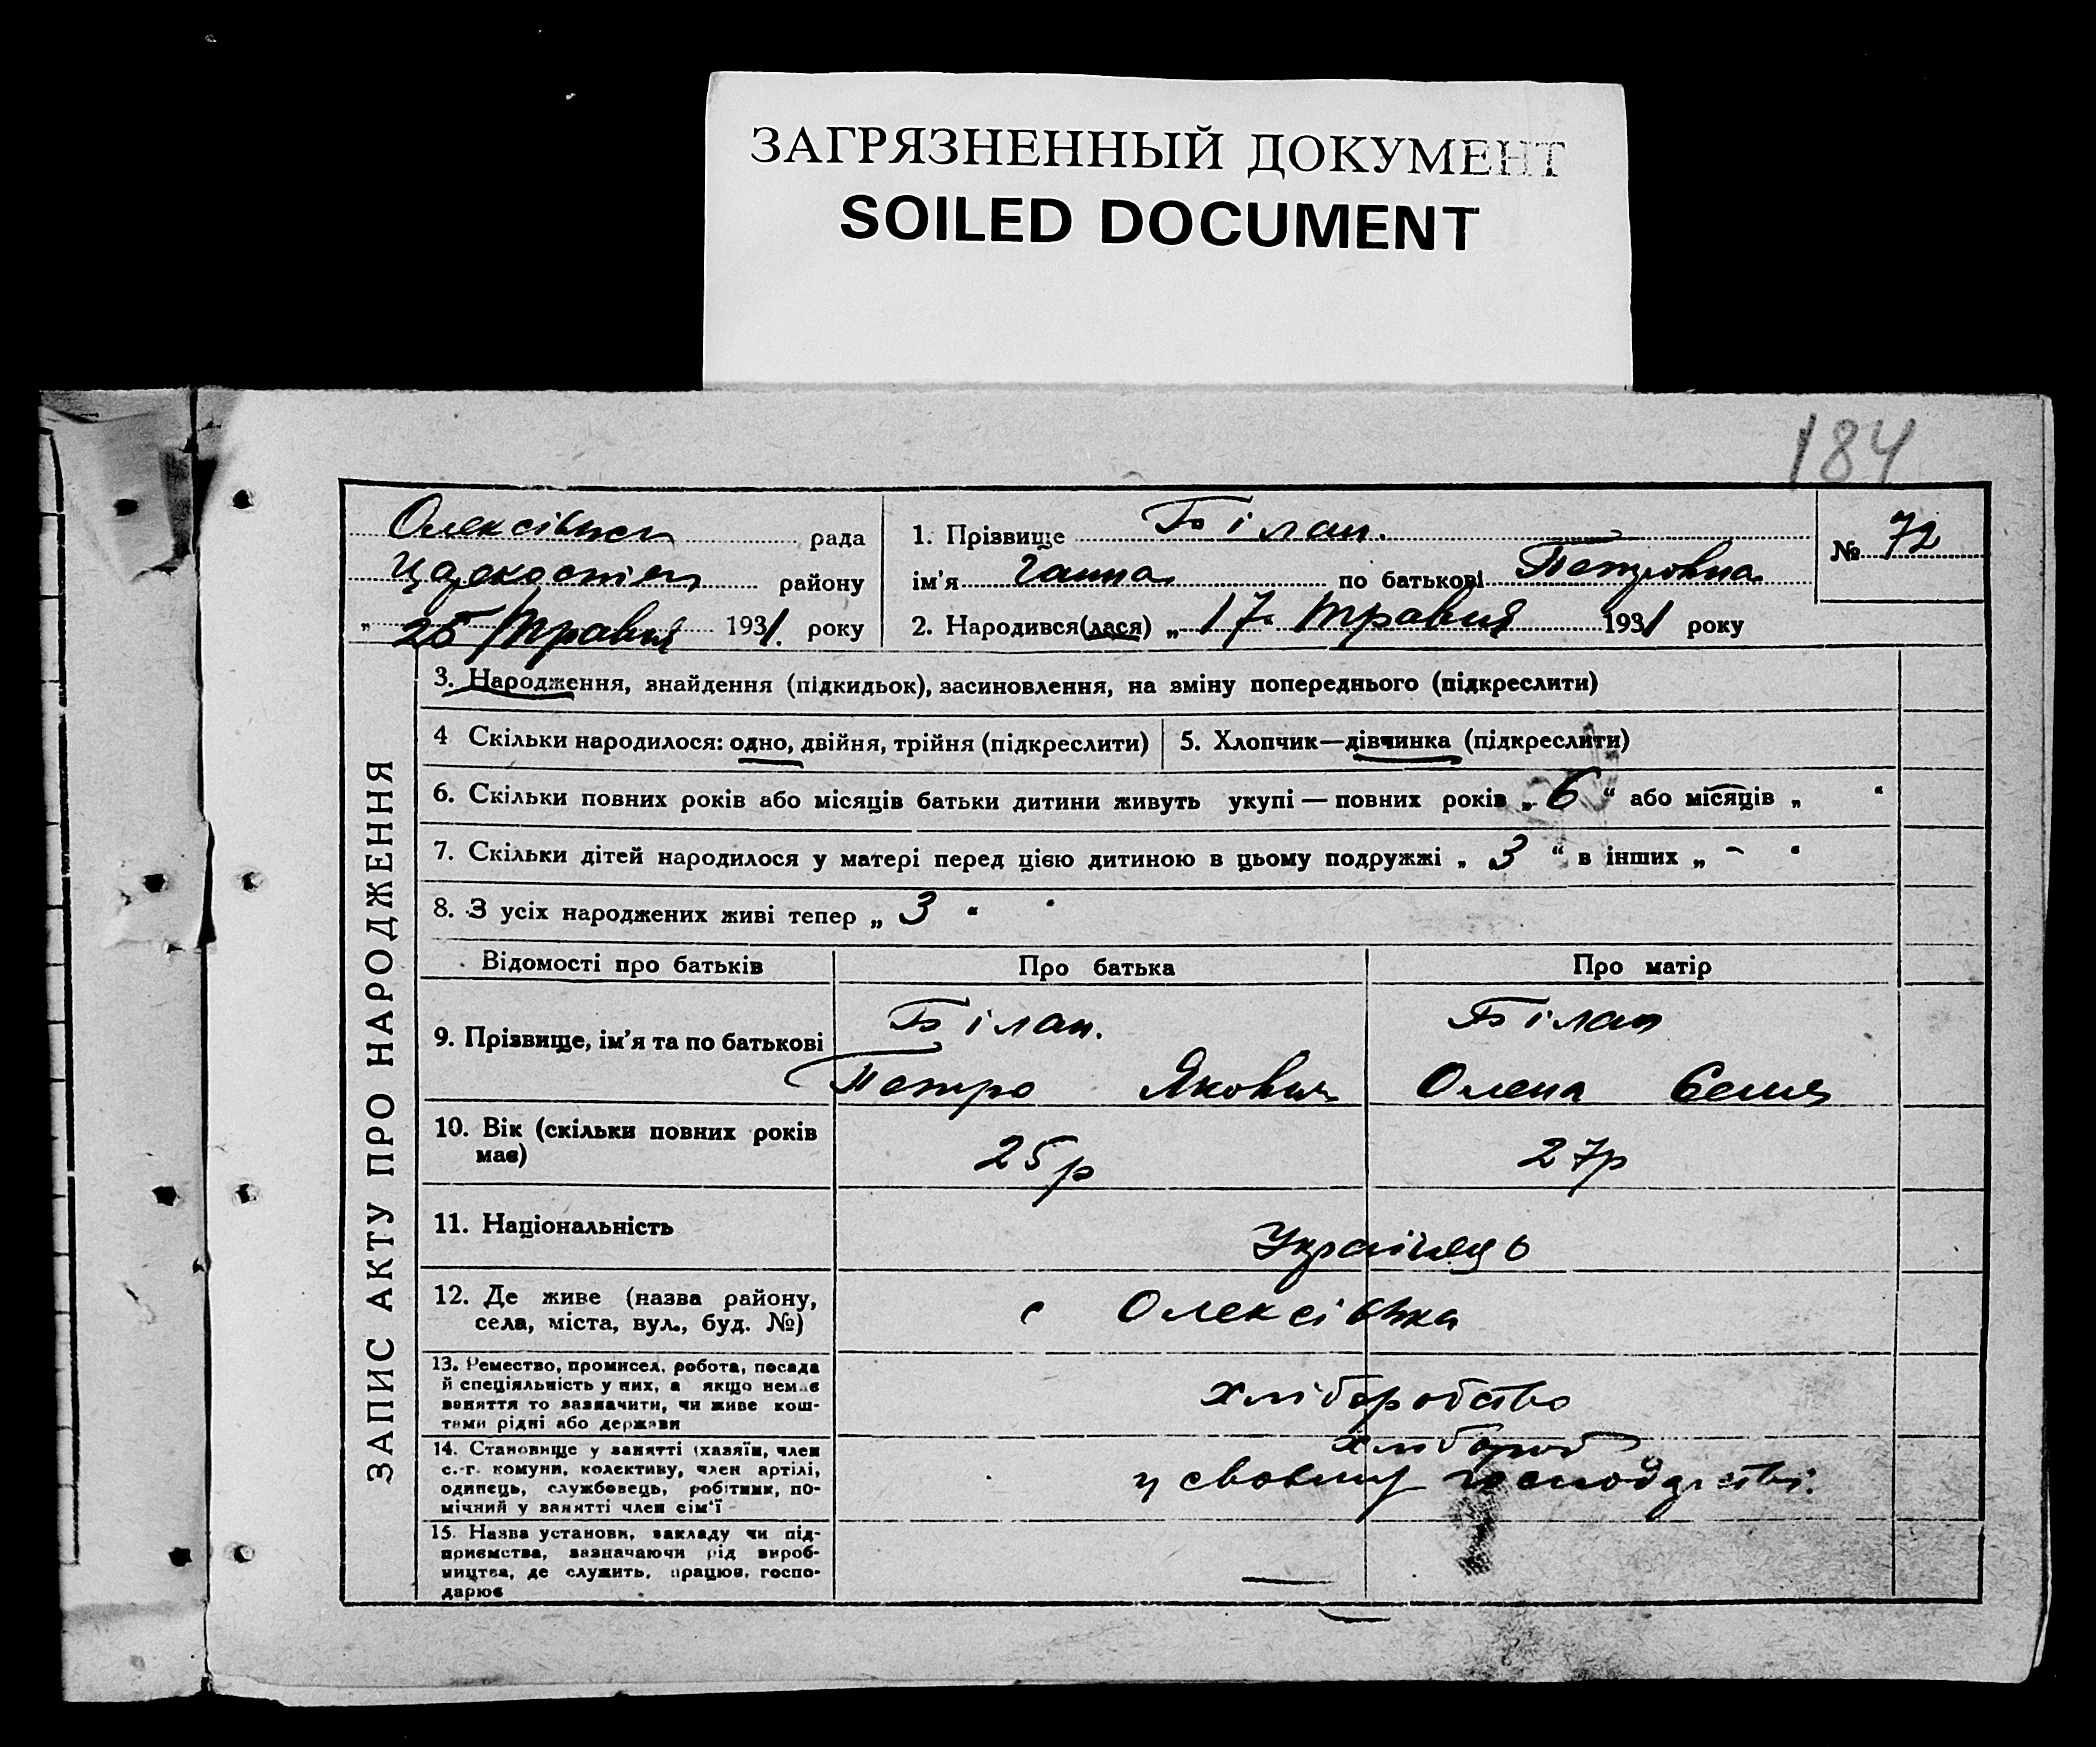 ЗАГРЯЗНЕННЫЙ ДОКУМЕНТ
SOILED DOCUMENT
184
Олексівськ рада
району
„ 25 Травня 1931. року
1. Прізвище Білан.
ім'я Ганна по батькові Петровна
№ 72
2. Народився(лася) „ 17 " Травня 1931 року
ЗАПИС АКТУ ПРО НАРОДЖЕННЯ
3. Народження, знайдення (підкидьок), засиновлення, на зміну попереднього (підкреслити)
4 Скільки народилося: одно, двійня, трійня (підкреслити)
5. Хлопчик—дівчинка (підкреслити)
6. Скільки повних років або місяців батьки дитини живуть укупі — повних років „ 6 " або місяців „ "
7. Скільки дітей народилося у матері перед цією дитиною в цьому подружжі „ 3 " в інших „ - "
8. З усіх народжених живі тепер „ 3 "
Відомості про батьків
Про батька
Про матір
9. Прізвище, ім'я та по батькові
Білан.
Петро Якович
Білан
Олена Семен
10. Вік (скільки повних років
має)
25 р
27 р
11. Національність
Українець
12. Де живе (назва району,
села, міста, вул., буд. №)
с Олексівка
13. Ремество, промисел, робота, посада
й спеціяльність у них, а якщо немає
заняття то зазначити, чи живе кош-
тами рідні або держави
хліборобство
14. Становище у занятті (хазяїн, член
с.-г. комуни, колективу, член артілі,
одинець, службовець, робітник, по-
мічний у занятті член сім'ї
хлібороб
у своєму господарстві.
15. Назва установи, закладу чи під-
приємства, зазначаючи рід вироб-
ництва, де служить, працює, госпо-
дарює
—